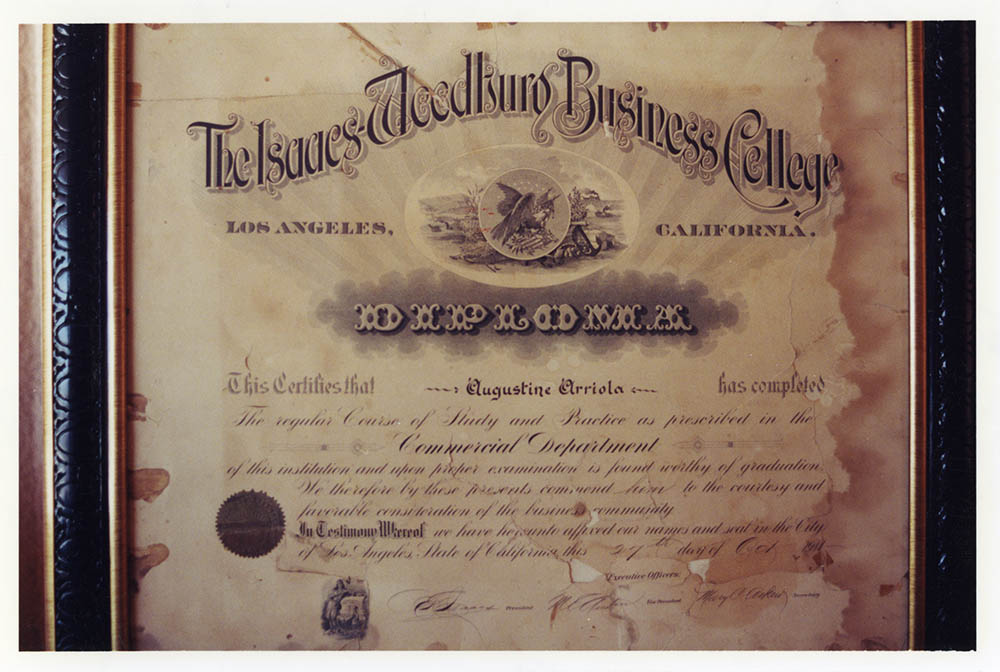 The Isaacs-Woodbury Business College
LOS ANGELES, CALIFORNIA.
DIPLOMA
This Certifies that Augustine Arriola has completed
The regular Course of Study and Practice as prescribed in the
Commercial Department
of this institution and upon proper examination is found worthy of graduation
We therefore by these presents commend him to the courtesy and
favorable consideration of the business community
In Testimony Whereof we have hereunto affixed our names and seal in the City
of Los Angeles, State of California, this 27th day of Oct
Executive Officers.
President Vice President Secretary